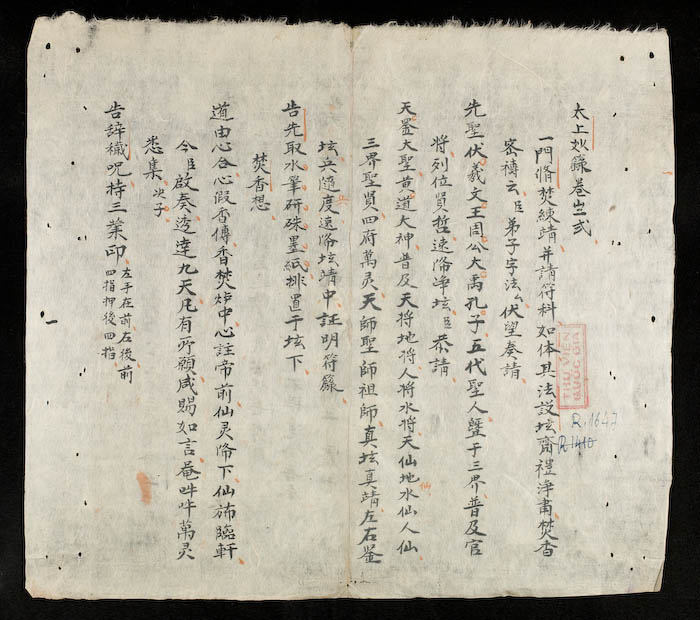 太上妙籙卷之弍
一門脩焚練靖并請符科如体具法設坛齋禮净書焚香
密禱云臣弟子字法厶伏望奏請
先聖伏羲文王周公大禹孔子五代聖人暨于三界普及官
將列位賢哲速降净坛臣恭請
天罡大聖黄道大神普及天將地將人將水將天仙地水仙人仙
三界聖賢四府萬灵天師聖師祖師真坛真靖左右鉴
坛兵隨度速降坛靖中証明符籙
告先取水筆研硃墨紙排置于坛下
焚香想
道由心合心假香傳香焚炉中心註帝前仙灵降下仙旆臨軒
今臣啟奏逵達九天凡有所願咸賜如言菴吽吽萬灵
悉集次子
告辞穢呪持三業印左手在前左後前
四指押後四指
一
仙
THƯ VIỆN
QUỐC GIA
R.1647
R.1410